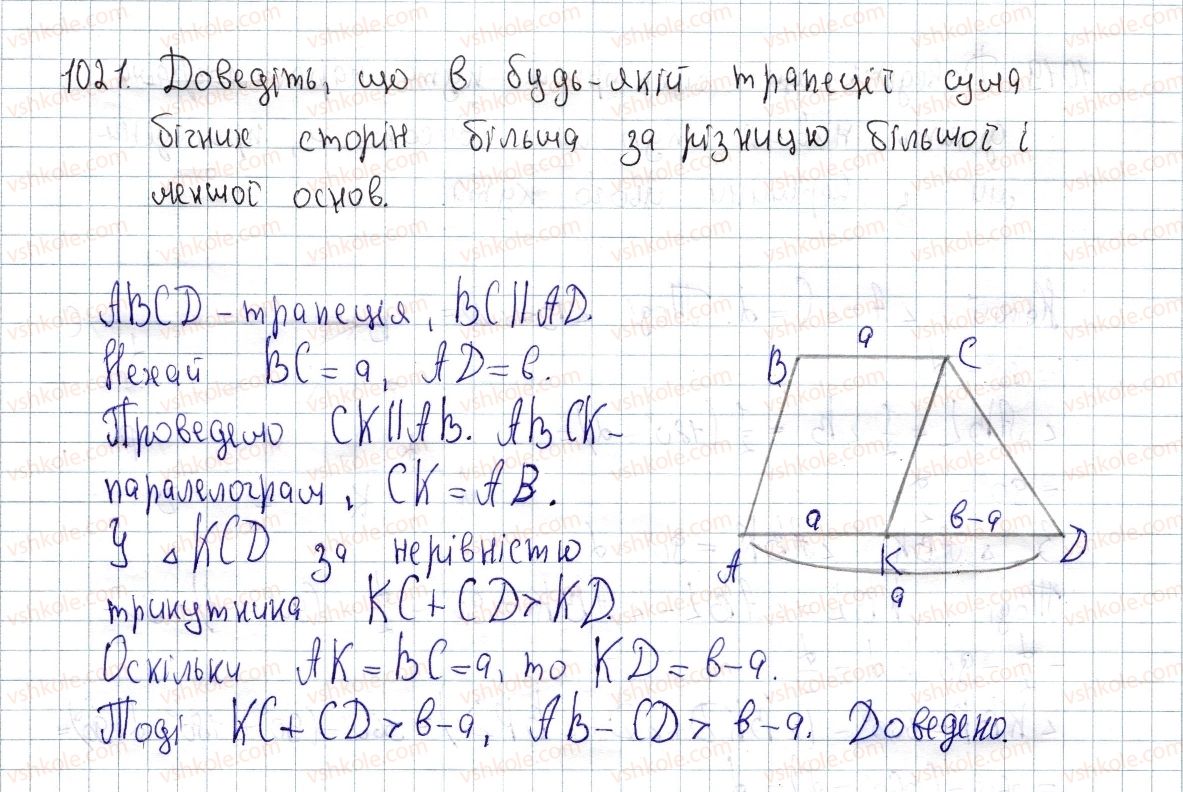 1021. Доведіть, що в будь-якій трапеції сума
бічних сторін більша за різницю більшої і
меншої основ.
ABCD - трапеція, BC || AD.
Нехай BC = a, AD = в.
Проведемо CK || AB. ABCK -
паралелограм, CK = AB.
У △KCD за нерівністю
трикутника KC + CD > KD.
Оскільки AK = BC = a, то KD = в - a.
Тоді KC + CD > в - a, AB - CD > в - a. Доведено.
a
B
C
a
в - a
A
K
D
a
vshkole.com